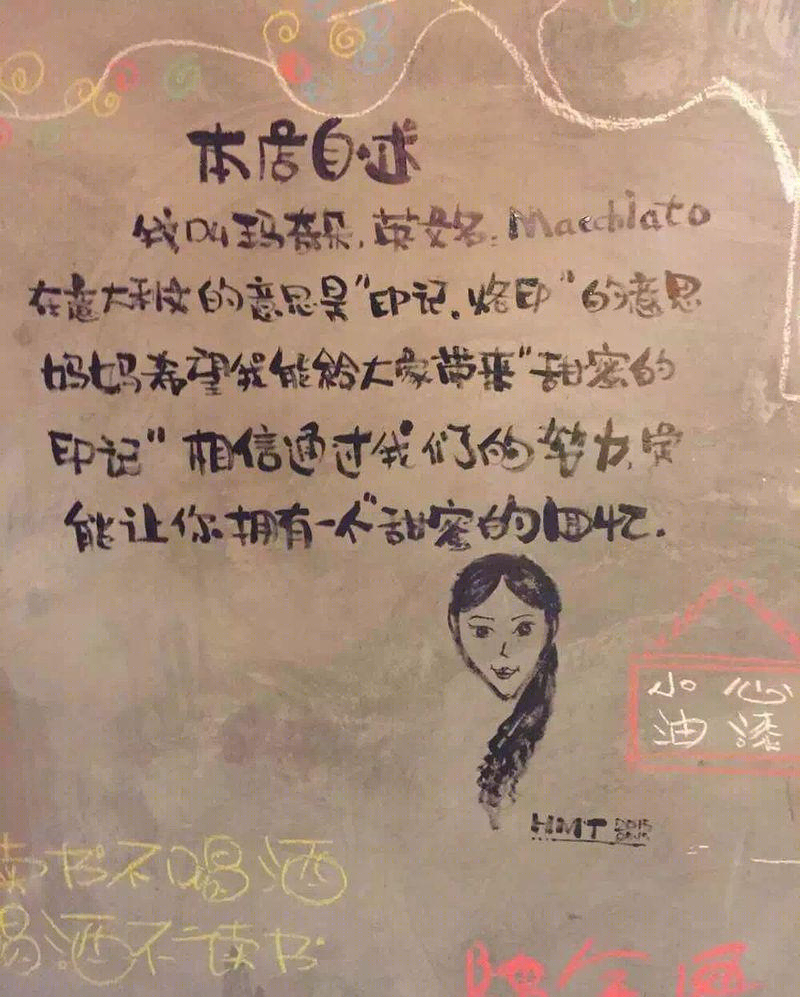 本店自述
我叫玛奇朵,英文名:Macchiato
在意大利文的意思是"印记.烙印"的意思
妈妈希望我能給大家带来"甜蜜的
印记"相信通过我们的努力,定
能让你拥有一个甜蜜的回忆.
小心
油漆
HMT 2015
读书不喝酒
喝酒不读书